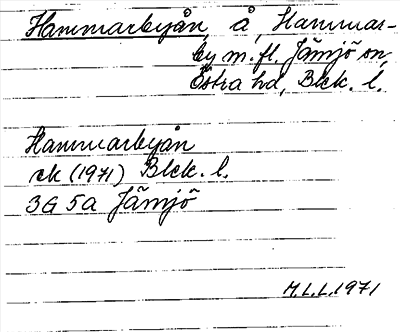 Hammarbyån, å, Hammar-
by m.fl. Jämjö sn,
Östra hd, Blek. l.
Hammarbyån
ek (1971) Blek. l.
3G 5a Jämjö
M.L.L. 1971